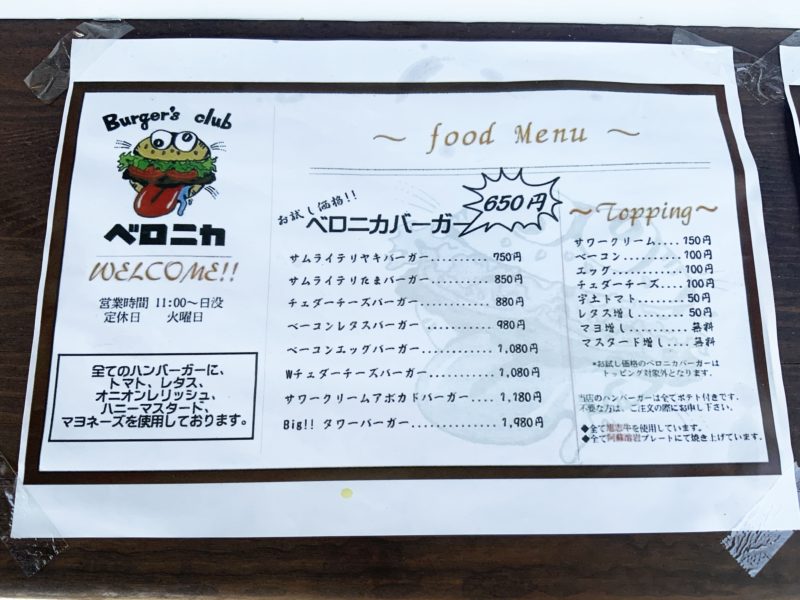 Burger's club
ベロニカ
WELCOME!!
営業時間 11:00〜日没
定休日 火曜日
全てのハンバーガーに、
トマト、レタス、
オニオンレリッシュ、
ハニーマスタード、
マヨネーズを使用しております。
〜 food Menu 〜
お試し価格!!
ベロニカバーガー
650円
サムライテリヤキバーガー.......... 750円
サムライテリたまバーガー.......... 850円
チェダーチーズバーガー............ 880円
ベーコンレタスバーガー ........... 980円
ベーコンエッグバーガー............ 1,080円
Wチェダーチーズバーガー........... 1,080円
サワークリームアボカドバーガー.... 1,180円
Big!! タワーバーガー.............. 1,980円
〜Topping〜
サワークリーム.... 150円
ベーコン.......... 100円
エッグ............ 100円
チェダーチーズ.... 100円
宇土トマト........ 50円
レタス増し........ 50円
マヨ増し.......... 無料
マスタード増し.... 無料
*お試し価格のベロニカバーガーは
トッピング対象外となります。
当店のハンバーガーは全てポテト付きです。
不要な方は、ご注文の際にお申し下さい。
◆全て
を使用しています。
◆全て阿蘇溶岩プレートにて焼き上げています。